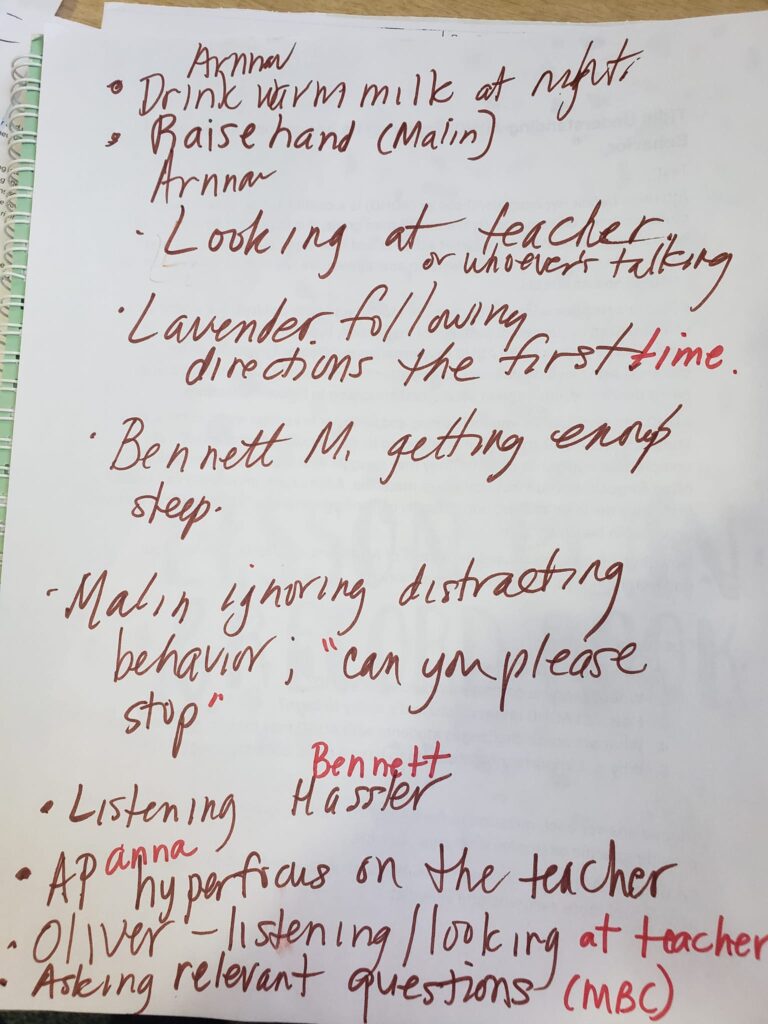 Arnnav
• Drink warm milk at night.
• Raise hand (Malin)
Arnnav
- Looking at teacher
or whoever's talking
· Lavender. following
directions the first time.
· Bennett M. getting enough
sleep.
- Malin ignoring distracting
behavior; "can you please
stop"
Bennett
• Listening Hassler
anna
• AP hyperfocus on the teacher
• Oliver - listening/looking at teacher
• Asking relevant questions (MBC)